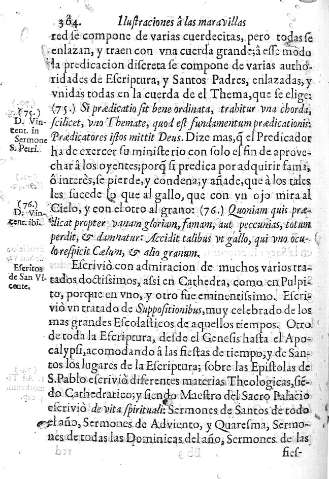 384. Ilustraciones â las maravillas
red se compone de varias cuerdecitas, pero todas se
enlazan, y traen con vna cuerda grande; â esse modo
la predicacion discreta se compone de varias autho-
ridades de Escriptura, y Santos Padres, enlazadas, y
vnidas todas en la cuerda de el Thema, que se elige:
(75.) Si prædicatio sit bene ordinata, trahitur vna chorda,
scilicet, vno Themate, quod est fundamentum prædicationis:
Prædicatores istos mittit Deus. Dize mas, q̃ el Predicador
ha de exercer su ministerio con solo el fin de aprove-
char â los oyentes; porq̃ si predica por adquirir fama,
ô interès, se pierde, y condena; y añade, que â los tales
les sucede lo que al gallo, que con vn ojo mira al
Cielo, y con el otro al grano: (76.) Quoniam quis præ-
dicat propter vanam gloriam, famam, aut peccunias, totum
perdit, & damnatur: Accidit talibus vt gallo, qui vno ocu-
lo respicit Cælum, & alio granum.
Escriviò con admiracion de muchos varios tra-
tados doctissimos, assi en Cathedra, como en Pulpi-
to, porque en vno, y otro fue eminentissimo. Escri-
viò vn tratado de Suppositionibus, muy celebrado de los
mas grandes Escolasticos de aquellos tiempos. Otro
de toda la Escriptura, desde el Genesis hasta el Apo-
calypsi, acomodando â las fiestas de tiempo, y de San-
tos los lugares de la Escriptura; sobre las Epistolas de
S. Pablo escriviò diferentes materias Theologicas, siẽ-
do Cathedratico; y siendo Maestro del Sacro Palacio
escriviò de vita spirituali: Sermones de Santos de todo
el año, Sermones de Adviento, y Quaresma, Sermo-
nes de todas las Dominicas del año, Sermones de las
fies-
(75.)
D. Vin-
cent. in
Sermone
S. Petri.
(76.)
D. Vin-
cent. ibi.
Escritos
de San Vi-
cente.